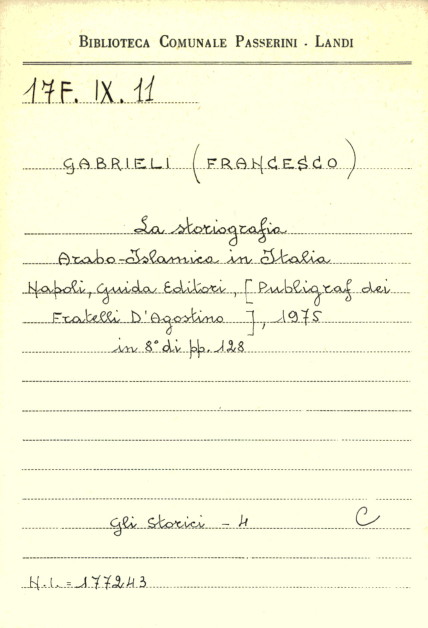 BIBLIOTECA COMUNALE PASSERINI - LANDI
17F. IX. 11
GABRIELI (FRANCESCO)
La storiografia
Arabo-Islamica in Italia
Napoli, Guida Editori, [Publigraf dei
Fratelli D'Agostino], 1975
in 8° di pp. 128
Gli Storici - 4 C
N.I. = 177243